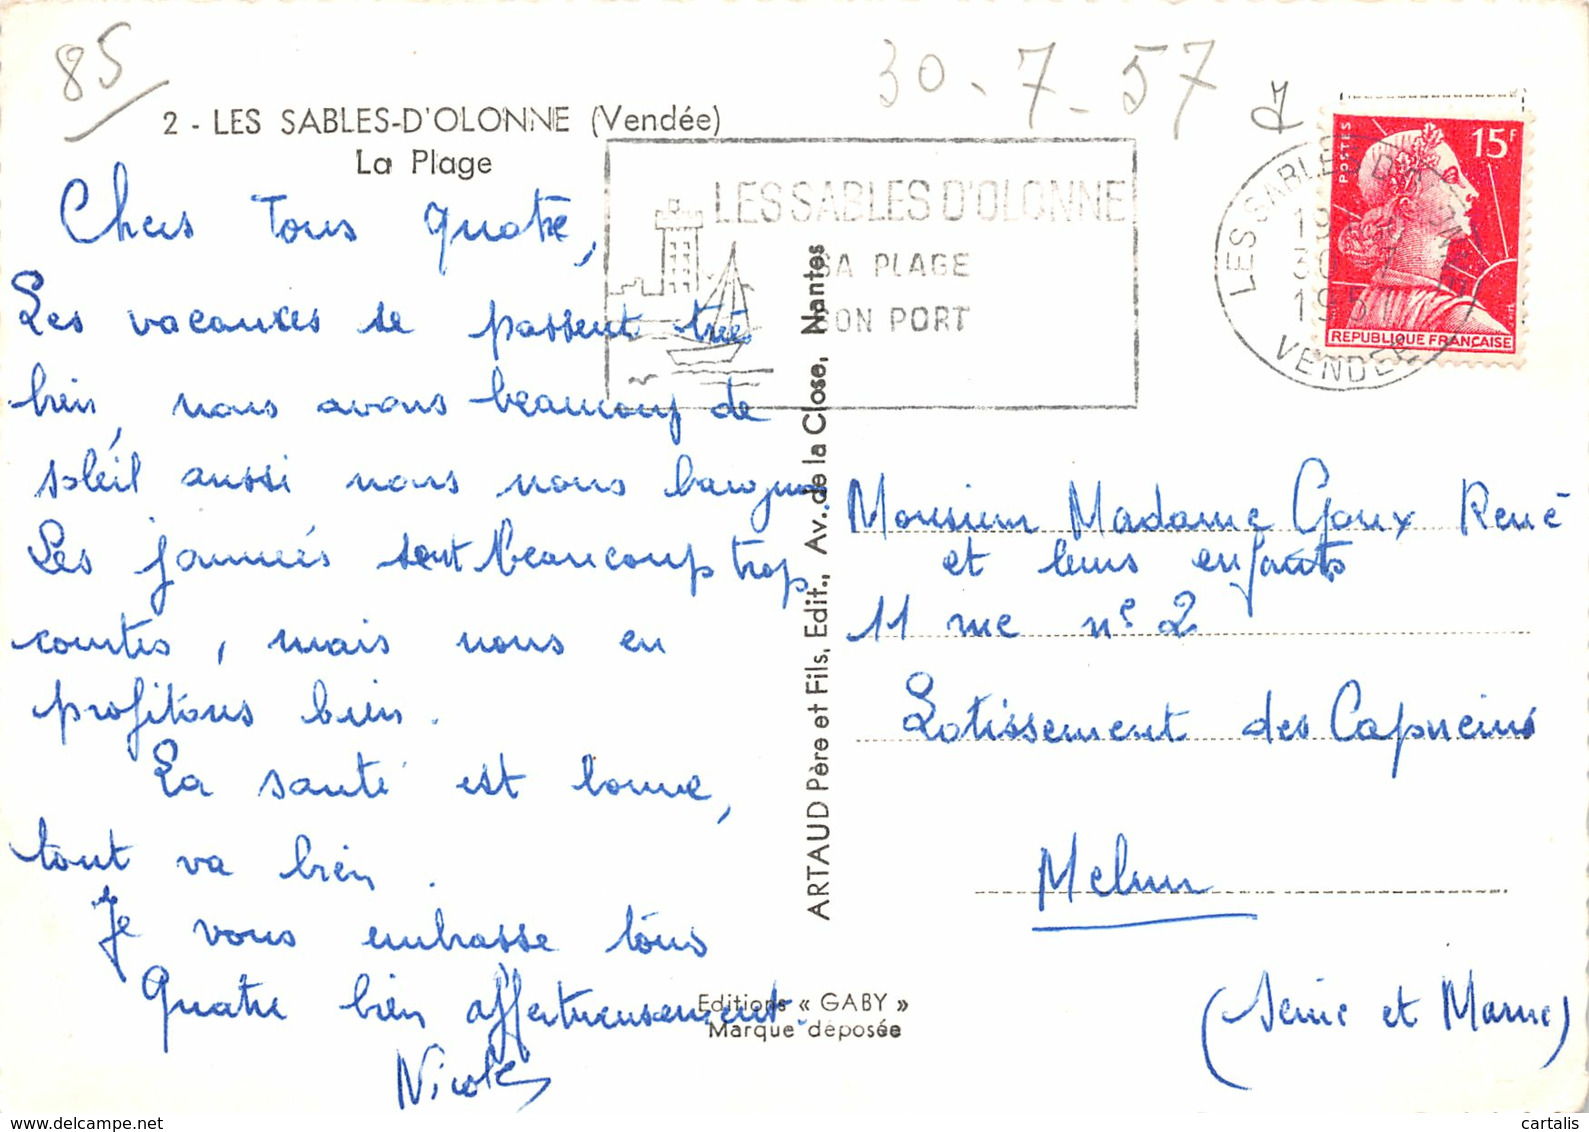 85
30-7-57
2 - LES SABLES-D'OLONNE (Vendée)
La Plage
LES SABLES D'OLONNE
SA PLAGE
SON PORT
LES SABLES D'OLONNE
30-7
195
VENDEE
POSTES
15F
REPUBLIQUE FRANÇAISE
Chers Tous quatre,
Les vacances se passent très
bien, nous avons beaucoup de
soleil aussi nous nous baignons.
Les journées sont beaucoup trop
courtes, mais nous en
profitons bien.
La santé est bonne,
tout va bien.
Je vous embrasse tous
Quatre bien affectueusement.
Nicole
ARTAUD Père et Fils, Edit., Av. de la Close, Nantes
Editions « GABY »
Marque déposée
Monsieur Madame Goux René
et leurs enfants
11 rue n° 2
Lotissement des Capucins
Melun
(Seine et Marne)
delcampe.net
cartalis